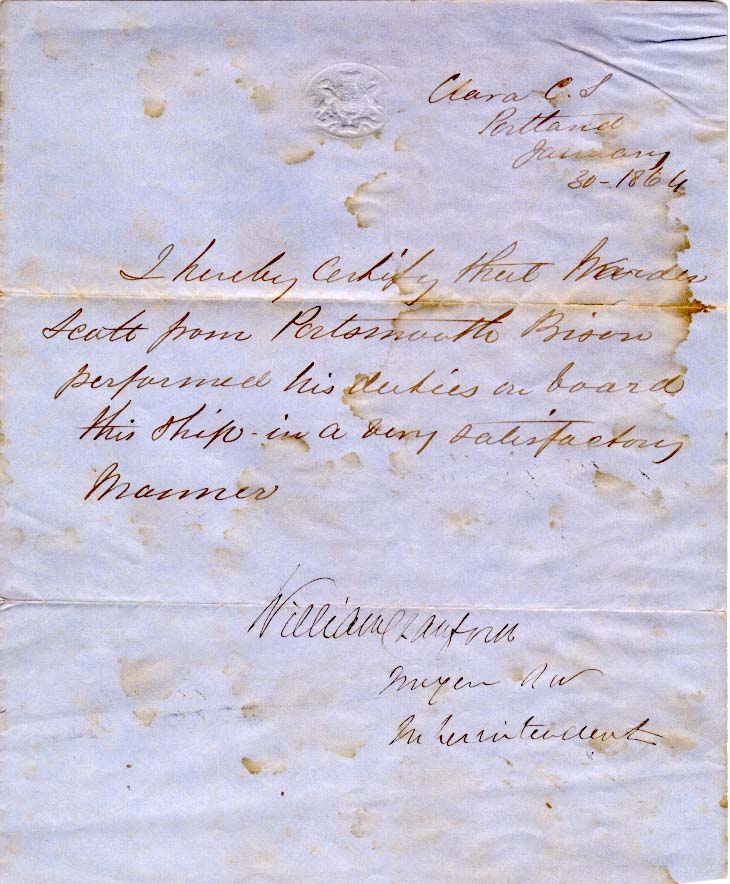 Clara C. S
Portland
January
30-1864
I hereby certify that Warder
Scott from Portsmouth Prison
performed his duties on board
this ship - in a very satisfactory
Manner
William Crawford
Surgeon RN
Superintendent